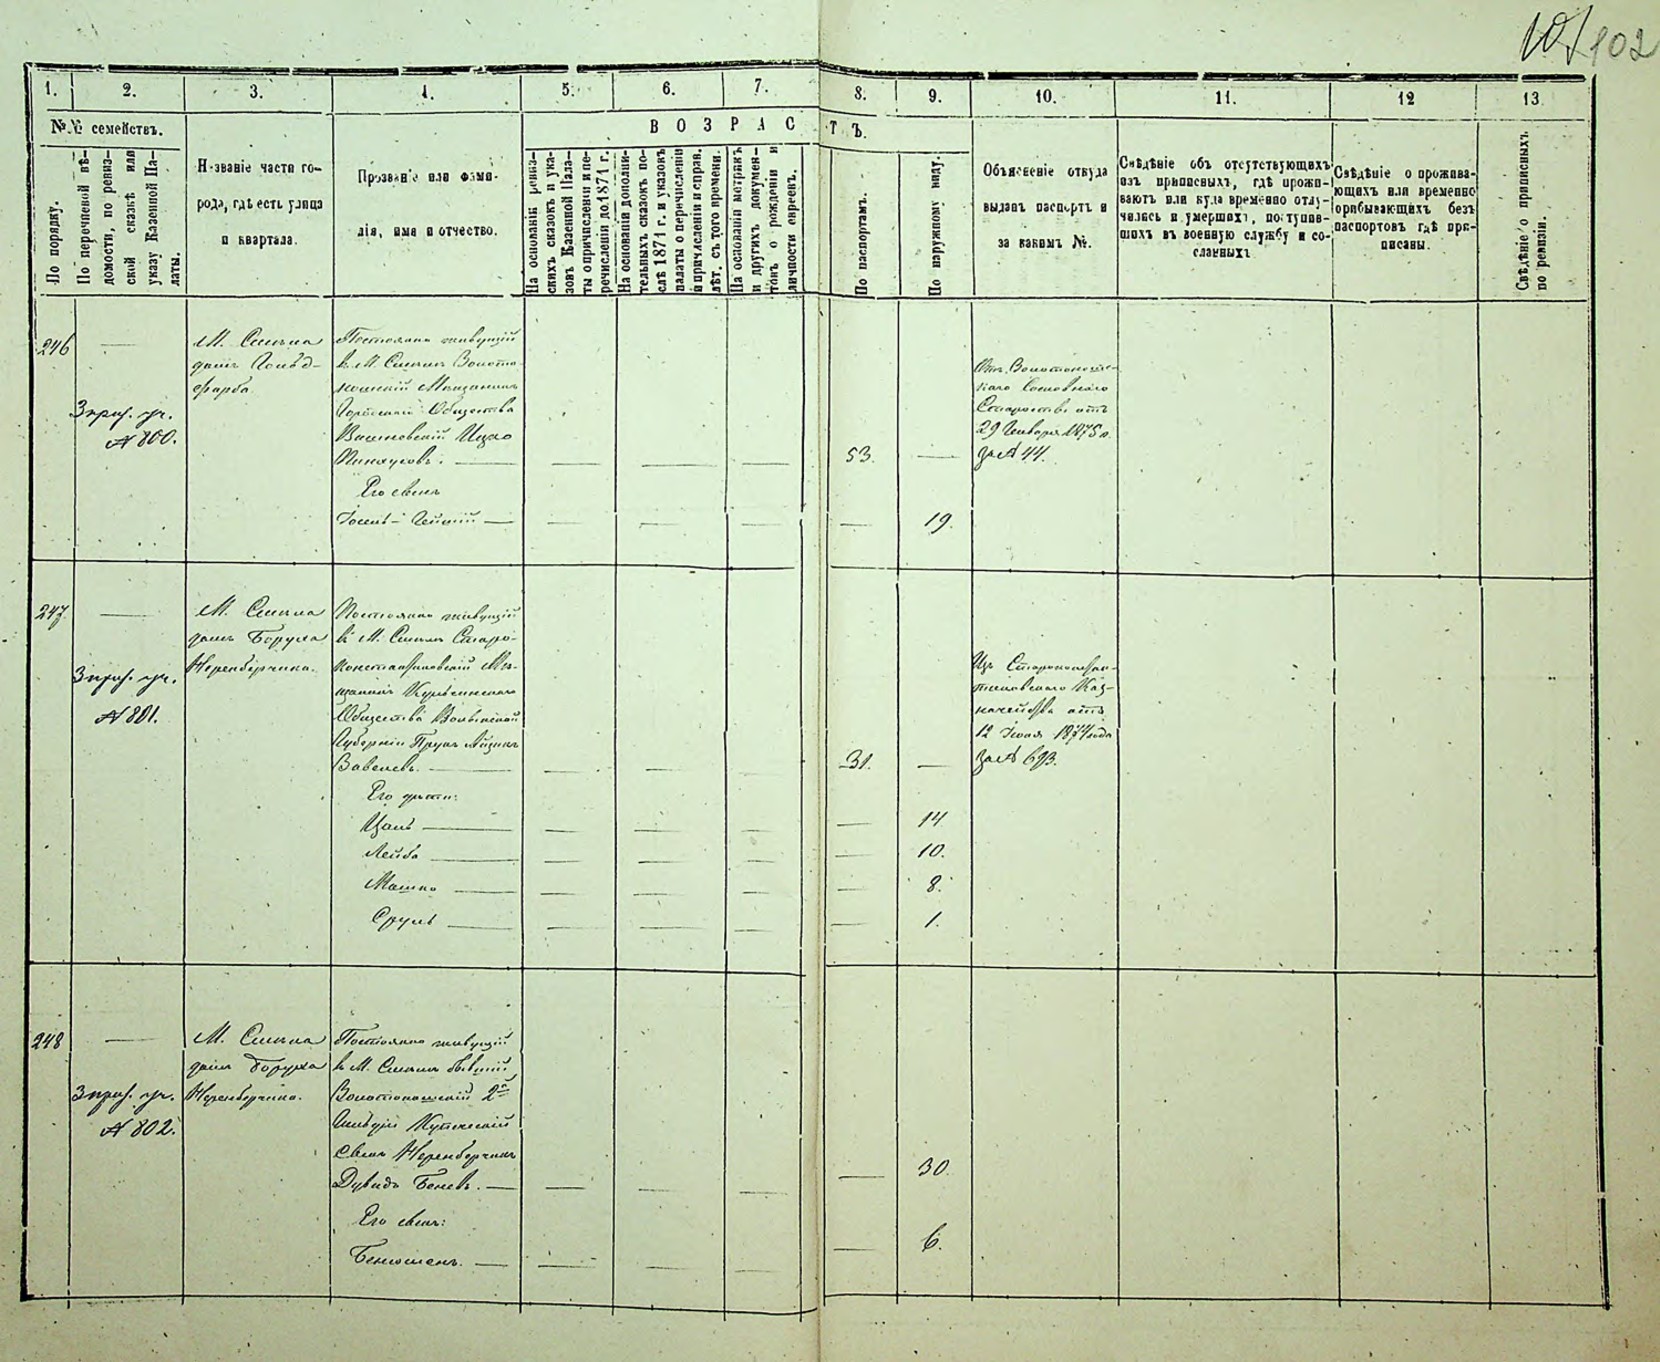 101 102
1. 2. 3. 4. 5. 6. 7. 8. 9. 10. 11. 12 13
№№ семействъ.
По порядку.
По перечневой вѣ-
домости, по ревиз-
ской сказкѣ или
указу Казенной Па-
латы.
Названіе части го-
рода, гдѣ есть улица
и квартала.
Прозваніе или фами-
лія, имя и отчество.
ВОЗРАСТЪ.
На основаніи ревиз-
скихъ сказокъ и ука-
зовъ Казенной Пала-
ты о причисленіи и пе-
речисленіи до 1874 г.
На основаніи дополни-
тельныхъ сказокъ по-
слѣ 1874 г. и указовъ
палаты о перечисленіи
и причисленіи и справ.
лѣт. съ того времени.
На основаніи метрикъ
и другихъ докумен-
товъ о рожденіи и
личности евреевъ.
По паспортамъ.
По наружному виду.
Объясненіе откуда
выданъ паспортъ и
за какимъ №.
Свѣдѣніе объ отсутствующихъ
изъ приписныхъ, гдѣ прожи-
ваютъ или куда временно отлу-
чились и умершихъ, поступив-
шихъ въ военную службу и со-
сланныхъ
Свѣдѣніе о прожива-
ющихъ или временно
прибывающихъ безъ
паспортовъ гдѣ при-
писаны.
Свѣдѣніе о приписныхъ
по ревизіи.
246
№ 800.
М. Смѣла
домъ Гольд-
фарба
Постоянно живущій
въ М. Смѣлѣ Золото-
ношскій Мѣщанинъ
Общества
Ицко
Пинхусовъ.
Его сынъ
53.
19.
Отъ Золотонош-
скаго Сословнаго
Старосты отъ
29 Января 1875 г.
за № 44.
247
№ 801.
М. Смѣла
домъ Боруха
Неренберчика.
Постоянно живущій
въ М. Смѣлѣ Старо-
константиновскій Мѣ-
щанинъ
Общества Волынской
Губерніи
Его дѣти:
Лейба
Мошко
Сруль
31.
14
10.
8.
1.
Изъ Староконстан-
тиновскаго Каз-
начейства отъ
12 Іюля 1874 года
за № 693.
248
№ 802.
М. Смѣла
домъ Боруха
Неренберчика.
Постоянно живущій
въ М. Смѣлѣ бывшій
Золотоношскій 2й
Гильдіи Купеческій
сынъ Неренберчикъ
Дувидъ
Его сынъ:
Беньюменъ.
30.
6.